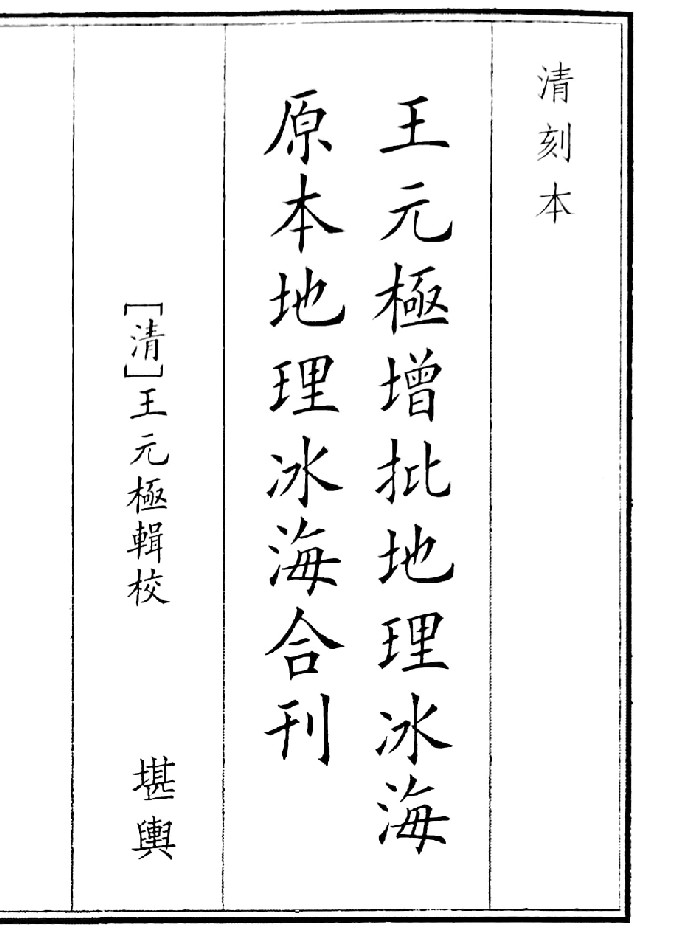 清刻本
王元極增批地理冰海
原本地理冰海合刊
[清]王元極輯校
堪輿